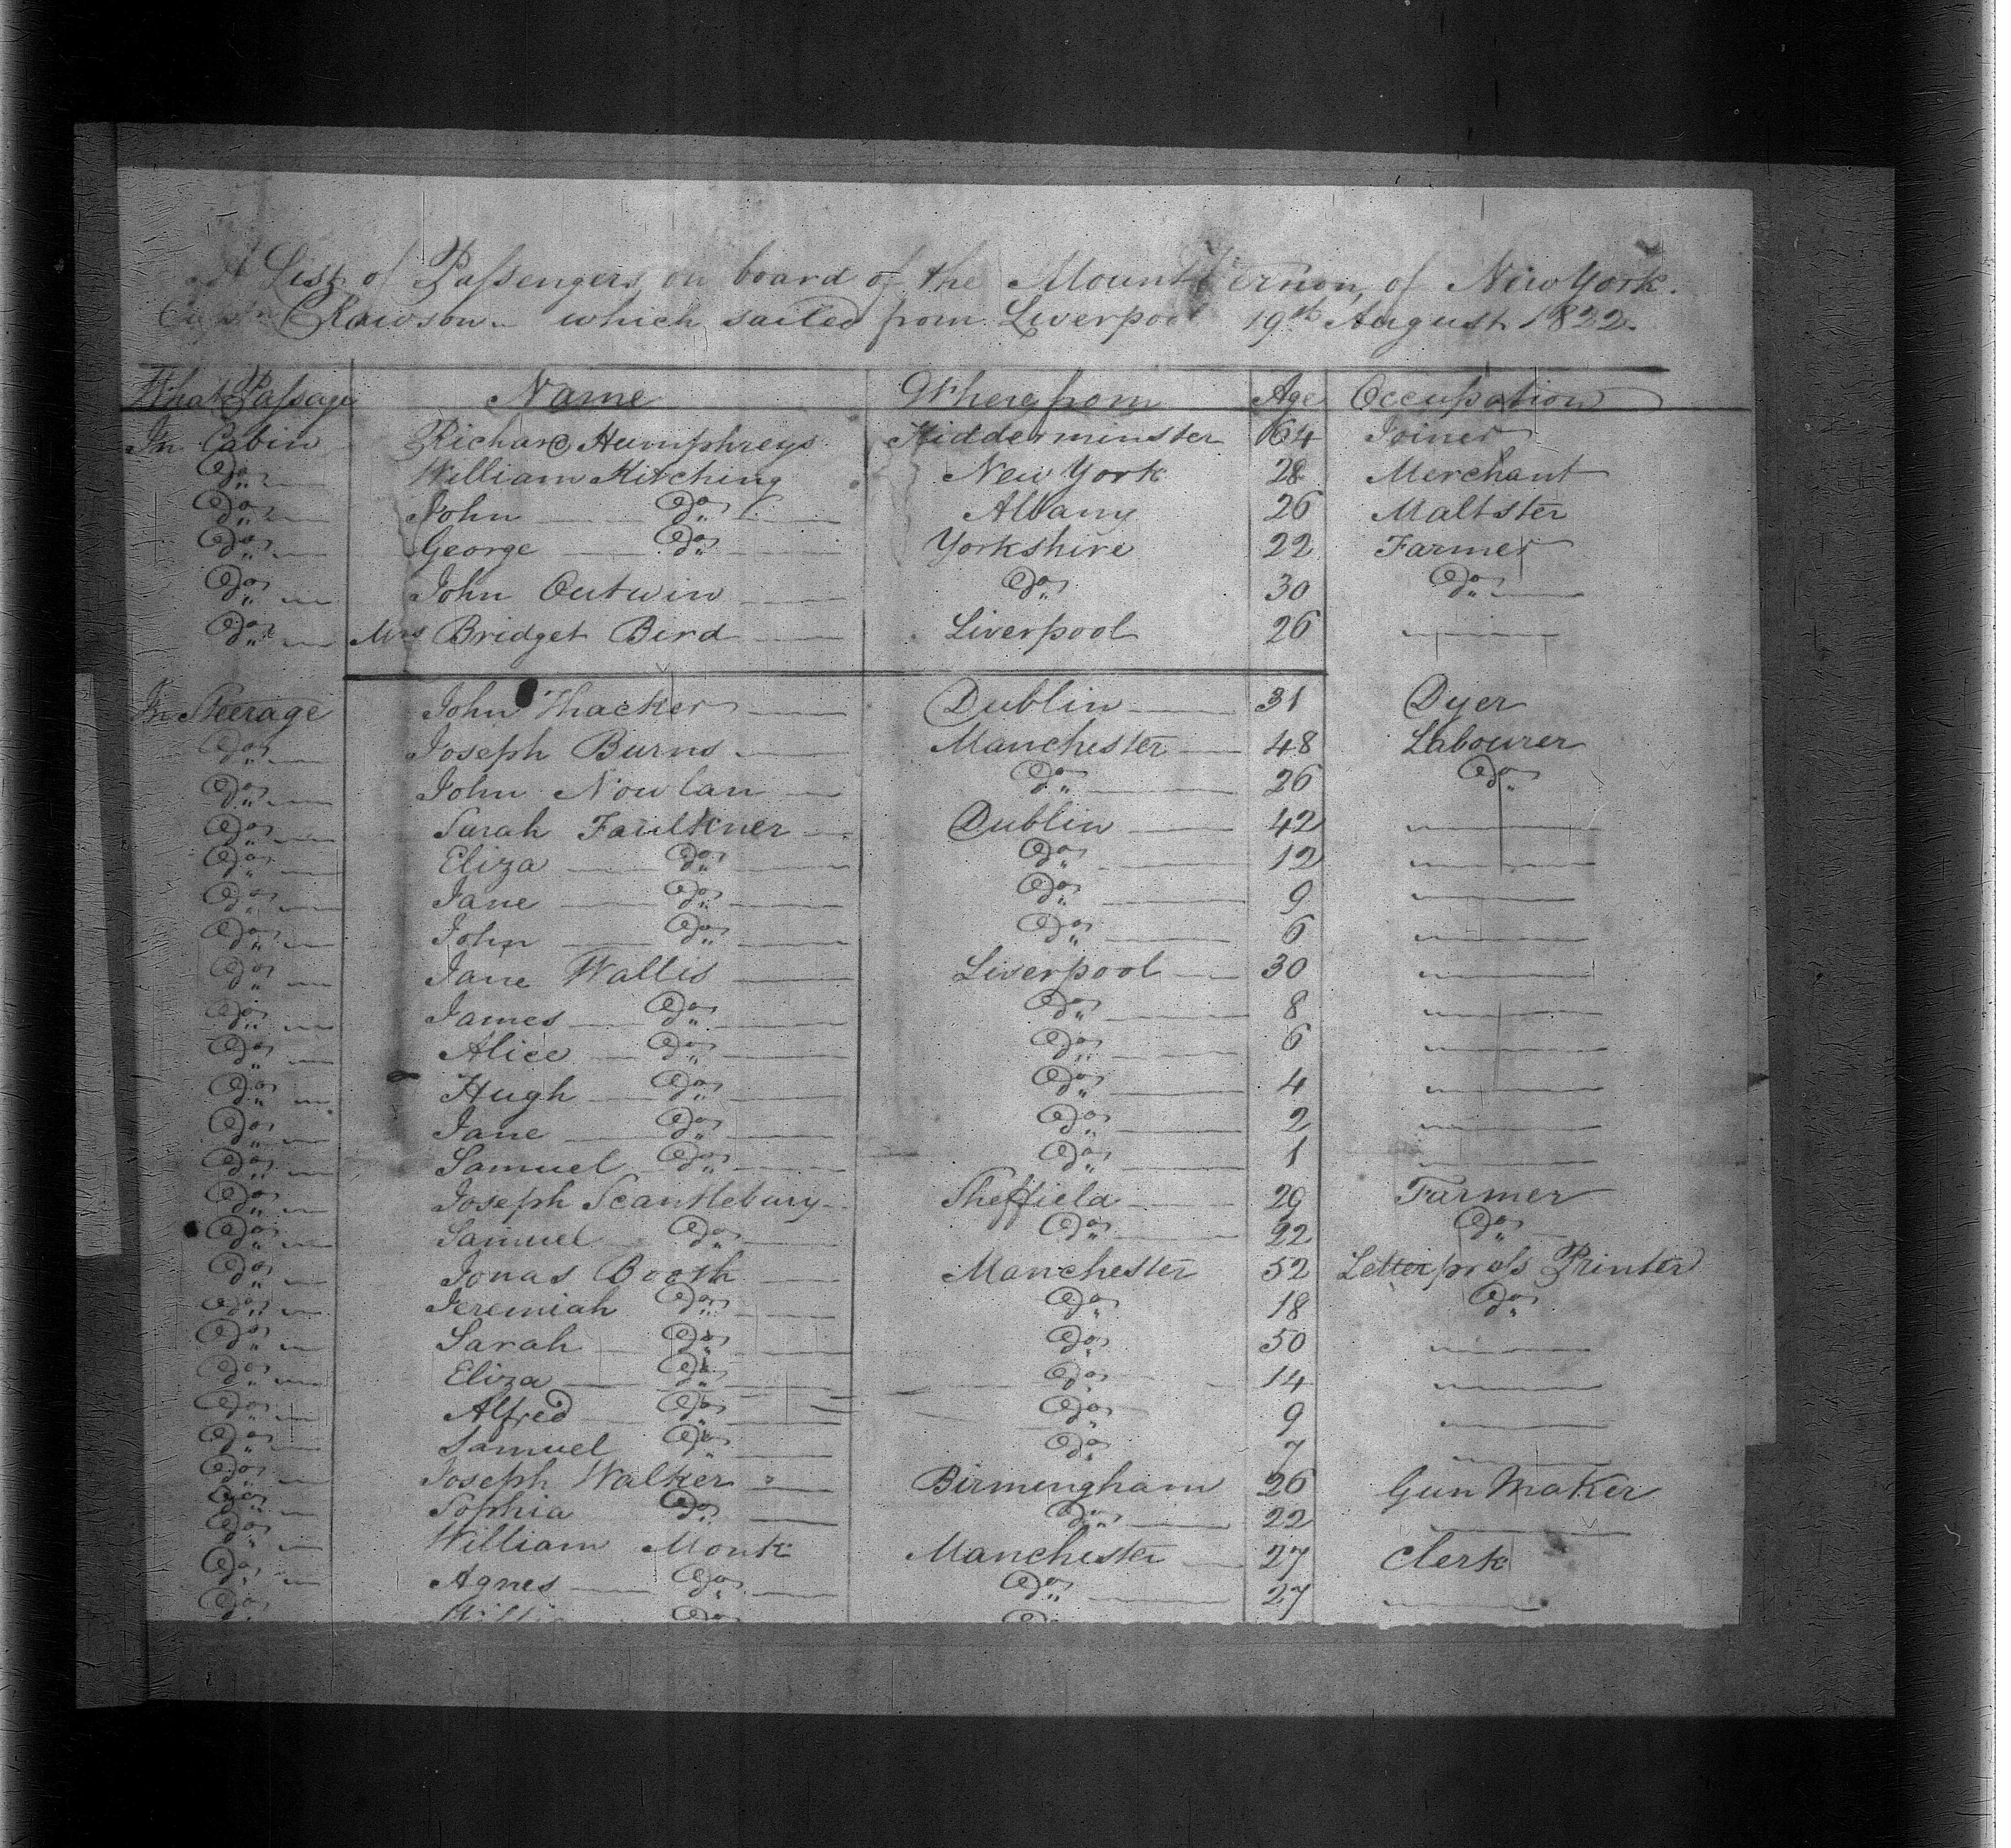 A List of Passengers on board of the Mount Vernon, of New York.
Captn Rawson which sailed from Liverpool 19th August 1822
What Passage Name Where from Age Occupation
In Cabin Richard Humphreys Kidderminster 64 Joiner
Do William Kitching New York 28 Merchant
Do John Do Albany 26 Maltster
Do George Do Yorkshire 22 Farmer
Do John Outwin Do 30 Do
Do Mrs Bridget Bird Liverpool 26
In Steerage John Thacker Dublin 31 Dyer
Do Joseph Burns Manchester 48 Labourer
Do John Nowlan Do 26 Do
Do Sarah Faulkner Dublin 42
Do Eliza Do Do 12
Do Jane Do Do 9
Do John Do Do 6
Do Jane Wallis Liverpool 30
Do James Do Do 8
Do Alice Do Do 6
Do Hugh Do Do 4
Do Jane Do Do 2
Do Samuel Do Do 1
Do Joseph Scantlebury Sheffield 29 Farmer
Do Samuel Do Do 22 Do
Do Jonas Booth Manchester 52 Letter press Printer
Do Jeremiah Do Do 18 Do
Do Sarah Do Do 50
Do Eliza Do Do 14
Do Alfred Do Do 9
Do Samuel Do Do 7
Do Joseph Walker Birmingham 26 Gun Maker
Do Sophia Do Do 22
Do William Monk Manchester 27 Clerk
Do Agnes Do Do 27
Do Do Do